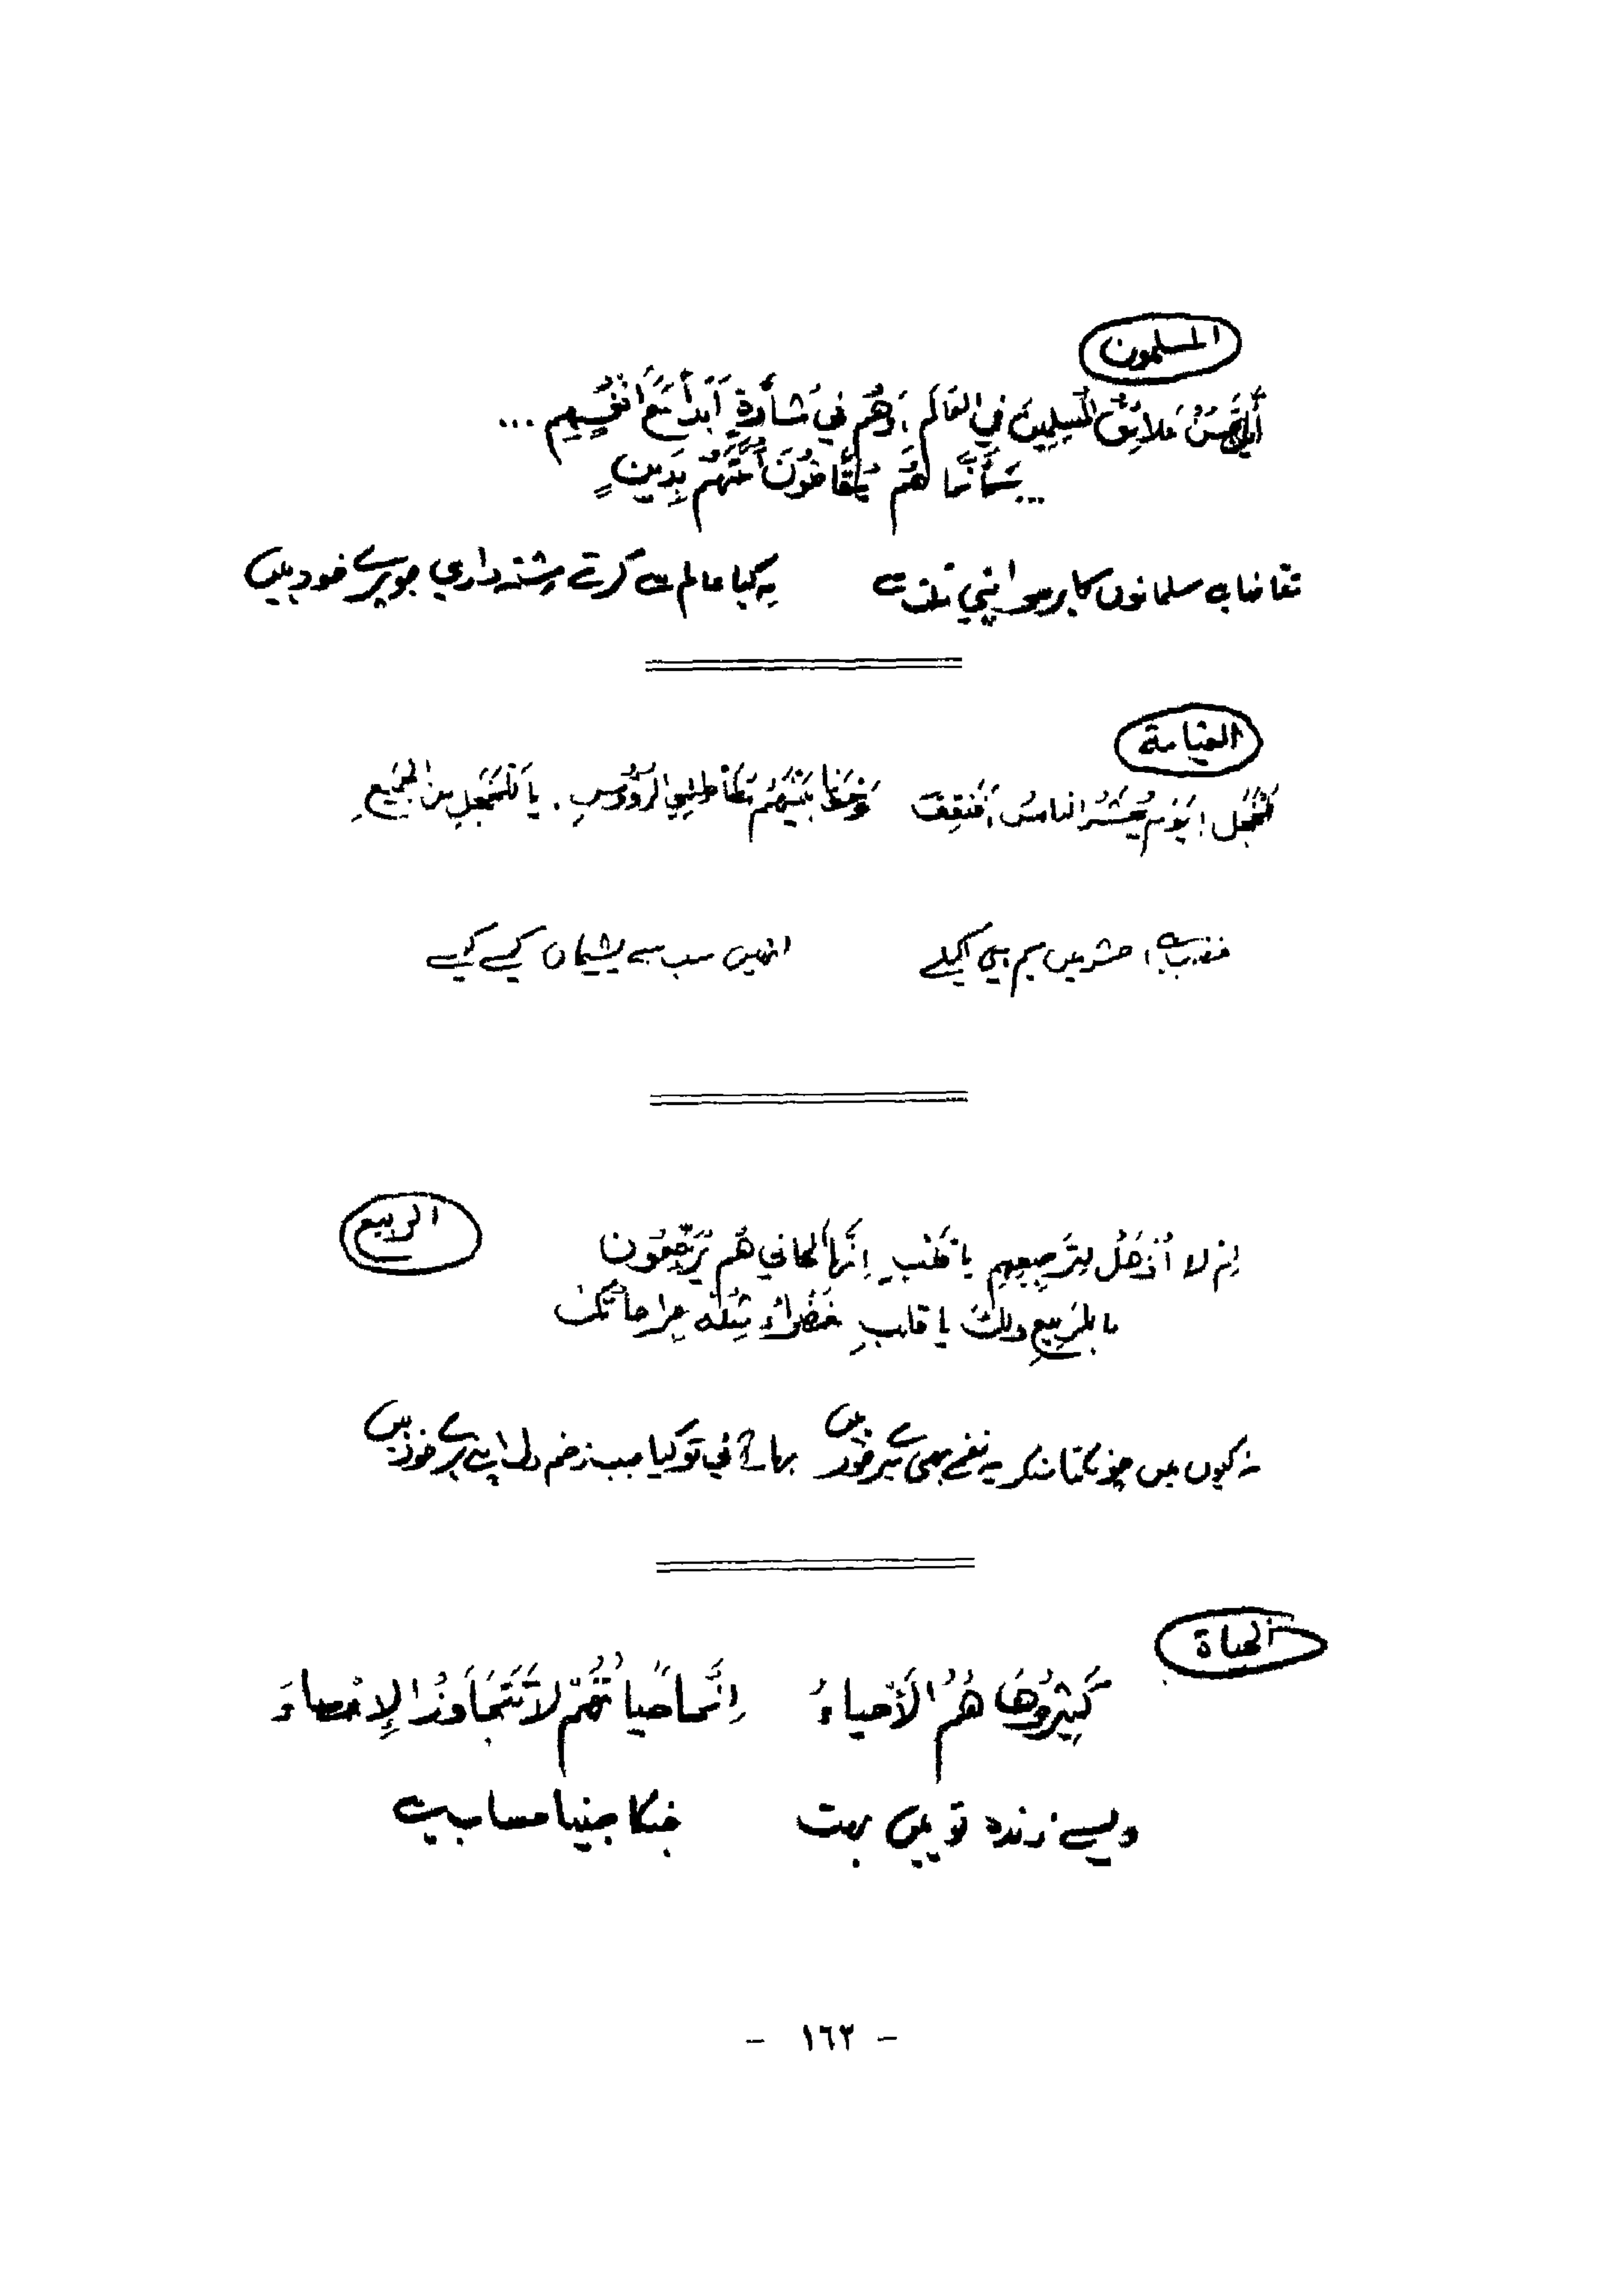 المسلمون
عَلائِقُ المُسلِمِينَ فِي العَالَمِ، وَهُم فِي مَشَأدَةٍ أَبَداً مَعَ أَنْفُسِهِم ...
... كَأَنَّمَا هُم يَتَقَاضُونَ أُمَّتَهُم بِدَينٍ
تقاضا ہے مسلمانوں کا پر سو اپنی ملت سے یہ کیا عالم سے کرتے رشتہ داري جو پرے خود ہیں
القيامة
يَوْمَ يُحْشَرُ الناسُ، أَفَنَقِفُ وَحْدَنَا بَيْنَهُم مُطَأطِئِي الرُؤُوسِ. يا لَلخَجَلِ مِنَ الجَمِيعِ
غضب ہے، حشر میں ہم ہی اکیلے انہیں سب سے پشیماں کیسے کیسے
الربيع
لِمَ لا أُذْهَلُ لِتَرجِيعِهِم يا قَلْبِ إِنَّهَا أَلحاني هُم يُرَجِّعُونَ
ما بِالرَبِيعِ ولكَ يا قلبِ خَضْراءُ مِثلَهُ جِراحاتُكَ
نہ کیوں میں چونکتا سنکر یہ نغمے بھی میرے خود ہیں بہار آئی تو کیا سبب زخم دل اپنے ہرے خود ہیں
الحياة
كَثِيرُونَ هَا هُمُ الأَحياءُ إِنَّما حَياتُهُمْ لاَ تَتَجَاوَزُ الإِحْصاءَ
ویسے زندہ تو ہیں بہت جنکا جینا حساب ہے
- ١٦٢ -